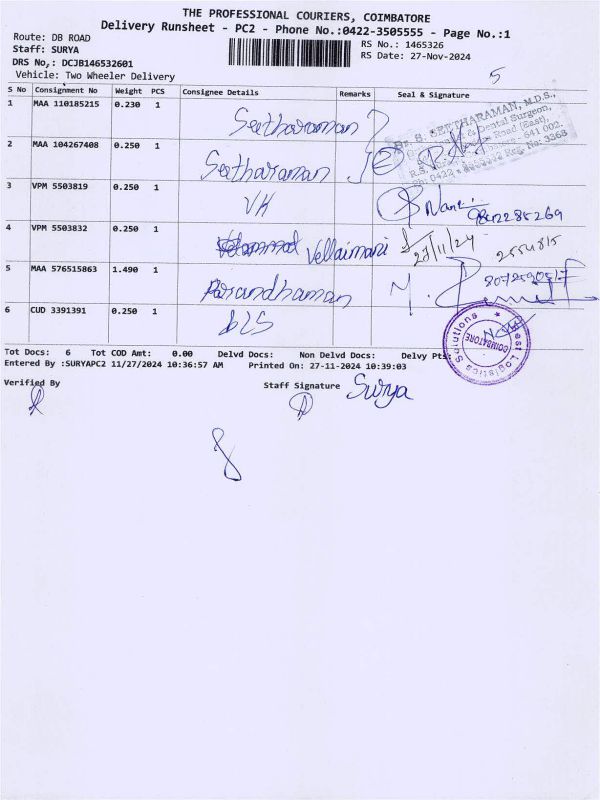 THE PROFESSIONAL COURIERS, COIMBATORE
Delivery Runsheet - PC2 - Phone No.:0422-3505555 - Page No.:1
Route: DB ROAD
RS No.: 1465326
Staff: SURYA
RS Date: 27-Nov-2024
DRS No,: DCJB146532601
Vehicle: Two Wheeler Delivery
5
S No Consignment No Weight PCS Consignee Details Remarks Seal & Signature
1 MAA 110185215 0.230 1 Seetharaman
Dr. S. SEETHARAMAN, M.D.S.,
Dental Surgeon,
Road (East),
R.S. - 641 002.
Ph: 0422 Reg. No: 3363
2 MAA 104267408 0.250 1 Seetharaman 2
3 VPM 5503819 0.250 1 VH
4 VPM 5503832 0.250 1 Vellaimani 27/11/24 2554815
5 MAA 576515863 1.490 1 Parandhaman
6 CUD 3391391 0.250 1 bLS
Logistics Solutions
COIMBATORE
Tot Docs: 6 Tot COD Amt: 0.00 Delvd Docs: Non Delvd Docs: Delvy Pts:
Entered By :SURYAPC2 11/27/2024 10:36:57 AM Printed On: 27-11-2024 10:39:03
Verified By Staff Signature Surya